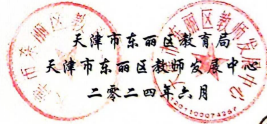 天津市东丽区教育局
天津市东丽区教师发展中心
二零二四年六月